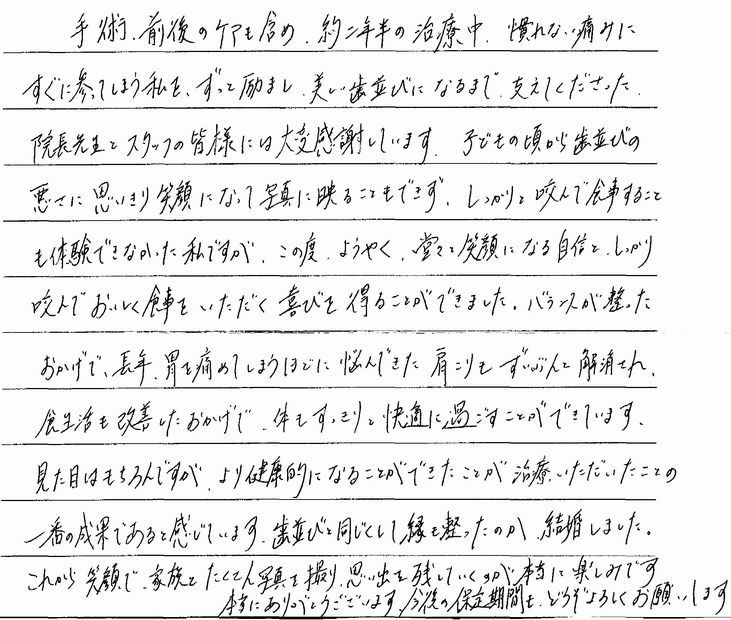 手術、前後のケアも含め、約二年半の治療中、慣れない痛みに
すぐに参ってしまう私を、ずっと励まし、美しい歯並びになるまで、支えてくださった、
院長先生とスタッフの皆様には大変感謝しています。子どもの頃から歯並びの
悪さに思いきり笑顔になって写真に映ることもできず、しっかりと咬んで食事すること
も体験できなかった私ですが、この度、ようやく、堂々と笑顔になる自信と、しっかり
咬んでおいしく食事をいただく喜びを得ることができました。バランスが整った
おかげで、長年、胃を痛めてしまうほどに悩んできた肩こりもずいぶんと解消され、
食生活も改善したおかげで、体もすっきりと快適に過ごすことができています。
見た目はもちろんですが、より健康的になることができたことが治療いただいたことの
一番の成果であると感じています。歯並びと同じくして縁も整ったのか、結婚しました。
これから笑顔で、家族とたくさん写真を撮り、思い出を残していくのが本当に楽しみです
本当にありがとうございます。今後の保定期間も、どうぞよろしくお願いします